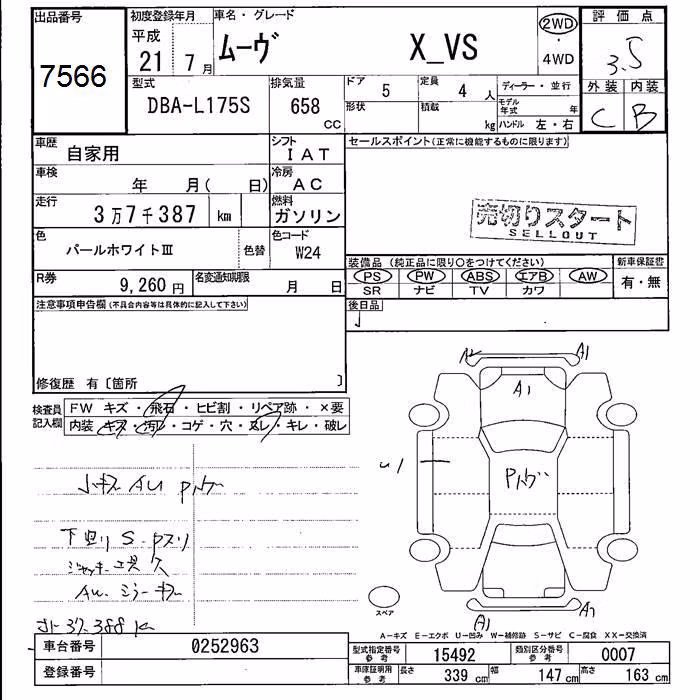 出品番号
7566
初度登録年月
平成
21 7月
車名・グレード
ムーヴ X_VS
2WD
・
4WD
評価点
3.5
外装 内装
C B
型式
DBA-L175S
排気量
658 cc
ドア 5
定員 4 人
形状
積載 kg
ディーラー・並行
モデル年式 年
ハンドル 左・右
車歴 自家用
シフト IAT
車検 年 月( 日)
冷房 AC
走行 3万7千387 km
燃料 ガソリン
色 パールホワイトⅢ
色替
色コード W24
R券 9,260円
名変通知期限 月 日
セールスポイント(正常に機能するものに限ります)
売切りスタート
SELLOUT
装備品(純正品に限り○をつけてください)
PS PW ABS エアB AW
SR ナビ TV カワ
新車保証書
有・無
後日品
注意事項申告欄(不具合内容等は具体的に記入して下さい)
修復歴 有〔箇所 〕
検査員記入欄
FW キズ・飛石・ヒビ割・リペア跡・×要
内装・キズ・汚れ・コゲ・穴・ヌレ・キレ・破レ
小キズ AU
下廻り S
ジャッキ工具欠
AU ミラーキズ
37.388 K
A2 A1
A1
U1
A1 A1
スペア
A-キズ E-エクボ U-凹み W-補修跡 S-サビ C-腐食 XX-交換済
車台番号 0252963
登録番号
型式指定番号 参考 15492
類別区分番号 参考 0007
車庫証明用 参考 長さ 339 cm 幅 147 cm 高さ 163 cm